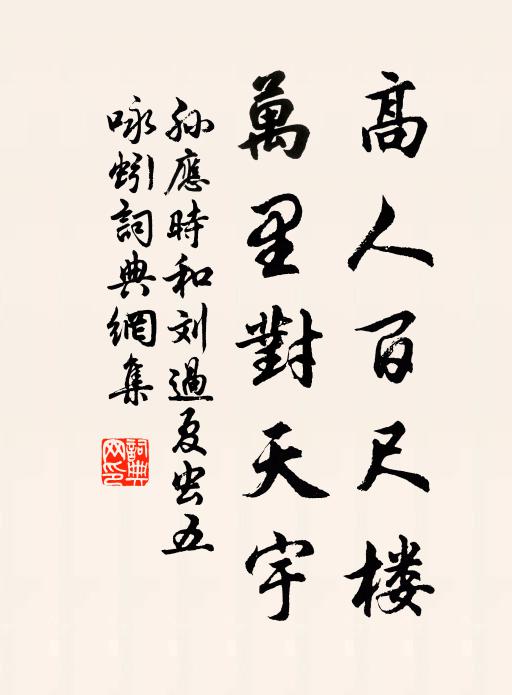 高人百尺楼
萬里對天宇
孙應時和刘過夏虫五
咏蚓詞典網集
詞典網印